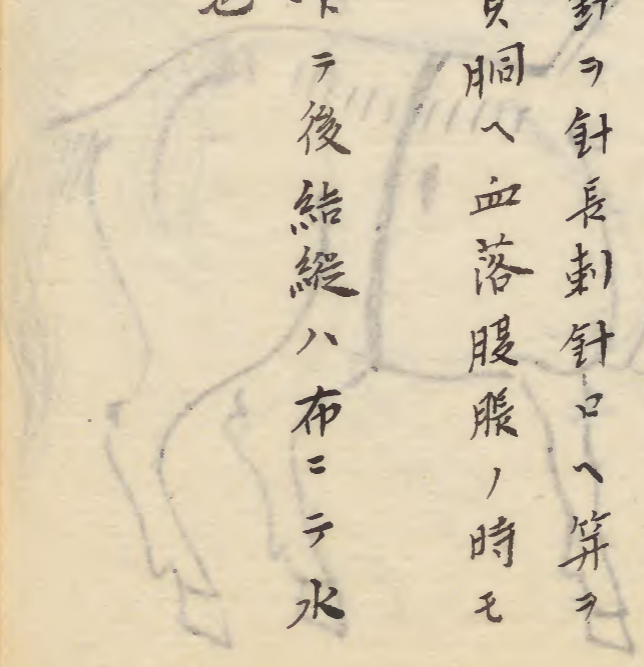 ヲ針長刺針口ヘ筭ヲ
胴ヘ血落腹脹ノ時モ
テ後結縦ハ布ニテ水